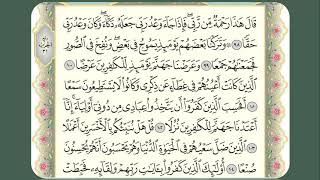 قَالَ هَٰذَا رَحْمَةٌ مِّن رَّبِّي فَإِذَا جَآءَ وَعْدُ رَبِّي جَعَلَهُۥ دَكَّآءَ وَكَانَ وَعْدُ رَبِّي
حَقًّا ٩٨ وَتَرَكْنَا بَعْضَهُمْ يَوْمَئِذٍ يَمُوجُ فِي بَعْضٍ وَنُفِخَ فِي ٱلصُّورِ
فَجَمَعْنَٰهُمْ جَمْعًا ٩٩ وَعَرَضْنَا جَهَنَّمَ يَوْمَئِذٍ لِّلْكَٰفِرِينَ عَرْضًا ١٠٠
ٱلَّذِينَ كَانَتْ أَعْيُنُهُمْ فِي غِطَآءٍ عَن ذِكْرِي وَكَانُوا۟ لَا يَسْتَطِيعُونَ سَمْعًا
١٠١ أَفَحَسِبَ ٱلَّذِينَ كَفَرُوٓا۟ أَن يَتَّخِذُوا۟ عِبَادِي مِن دُونِيٓ أَوْلِيَآءَ إِنَّآ
أَعْتَدْنَا جَهَنَّمَ لِلْكَٰفِرِينَ نُزُلًا ١٠٢ قُلْ هَلْ نُنَبِّئُكُم بِٱلْأَخْسَرِينَ أَعْمَٰلًا
١٠٣ ٱلَّذِينَ ضَلَّ سَعْيُهُمْ فِي ٱلْحَيَوٰةِ ٱلدُّنْيَا وَهُمْ يَحْسَبُونَ أَنَّهُمْ يُحْسِنُونَ
صُنْعًا ١٠٤ أُو۟لَٰٓئِكَ ٱلَّذِينَ كَفَرُوا۟ بِـَٔايَٰتِ رَبِّهِمْ وَلِقَآئِهِۦ فَحَبِطَتْ